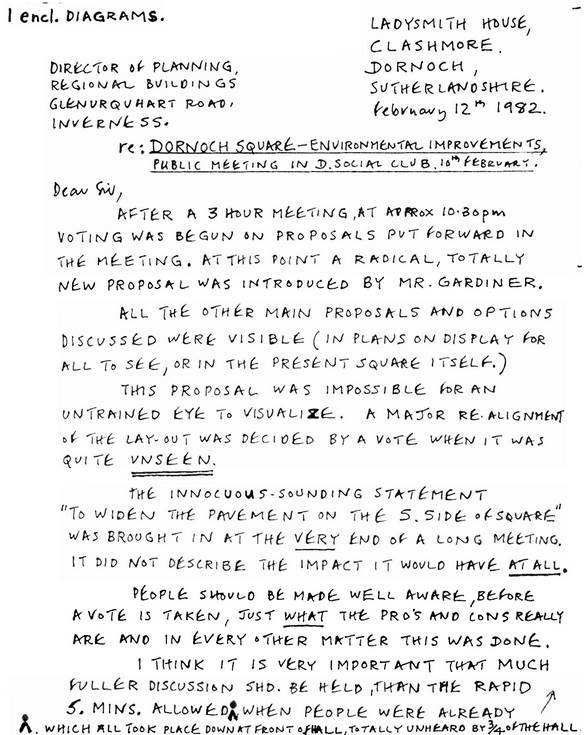 1 encl. DIAGRAMS.
LADYSMITH HOUSE,
CLASHMORE.
DORNOCH,
SUTHERLANDSHIRE.
February 12th 1982.
DIRECTOR OF PLANNING,
REGIONAL BUILDINGS
GLENURQUHART ROAD,
INVERNESS.
re: DORNOCH SQUARE - ENVIRONMENTAL IMPROVEMENTS,
PUBLIC MEETING IN D. SOCIAL CLUB. 10th FEBRUARY.
Dear Sir,
AFTER A 3 HOUR MEETING, AT APPROX 10.30pm
VOTING WAS BEGUN ON PROPOSALS PUT FORWARD IN
THE MEETING. AT THIS POINT A RADICAL, TOTALLY
NEW PROPOSAL WAS INTRODUCED BY MR. GARDINER.
ALL THE OTHER MAIN PROPOSALS AND OPTIONS
DISCUSSED WERE VISIBLE (IN PLANS ON DISPLAY FOR
ALL TO SEE, OR IN THE PRESENT SQUARE ITSELF.)
THIS PROPOSAL WAS IMPOSSIBLE FOR AN
UNTRAINED EYE TO VISUALIZE. A MAJOR RE-ALIGNMENT
OF THE LAY-OUT WAS DECIDED BY A VOTE WHEN IT WAS
QUITE UNSEEN.
THE INNOCUOUS-SOUNDING STATEMENT
"TO WIDEN THE PAVEMENT ON THE S. SIDE OF SQUARE"
WAS BROUGHT IN AT THE VERY END OF A LONG MEETING.
IT DID NOT DESCRIBE THE IMPACT IT WOULD HAVE AT ALL.
PEOPLE SHOULD BE MADE WELL AWARE, BEFORE
A VOTE IS TAKEN, JUST WHAT THE PRO'S AND CONS REALLY
ARE AND IN EVERY OTHER MATTER THIS WAS DONE.
I THINK IT IS VERY IMPORTANT THAT MUCH
FULLER DISCUSSION SHD. BE HELD, THAN THE RAPID
5. MINS. ALLOWED WHEN PEOPLE WERE ALREADY
WHICH ALL TOOK PLACE DOWN AT FRONT OF HALL, TOTALLY UNHEARD BY 3/4 OF THE HALL